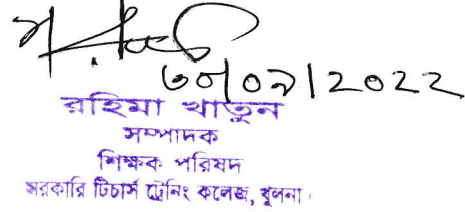 ৩০/০৯/2022
রহিমা খাতুন
সম্পাদক
শিক্ষক পরিষদ
সরকারি টিচার্স ট্রেনিং কলেজ, খুলনা।